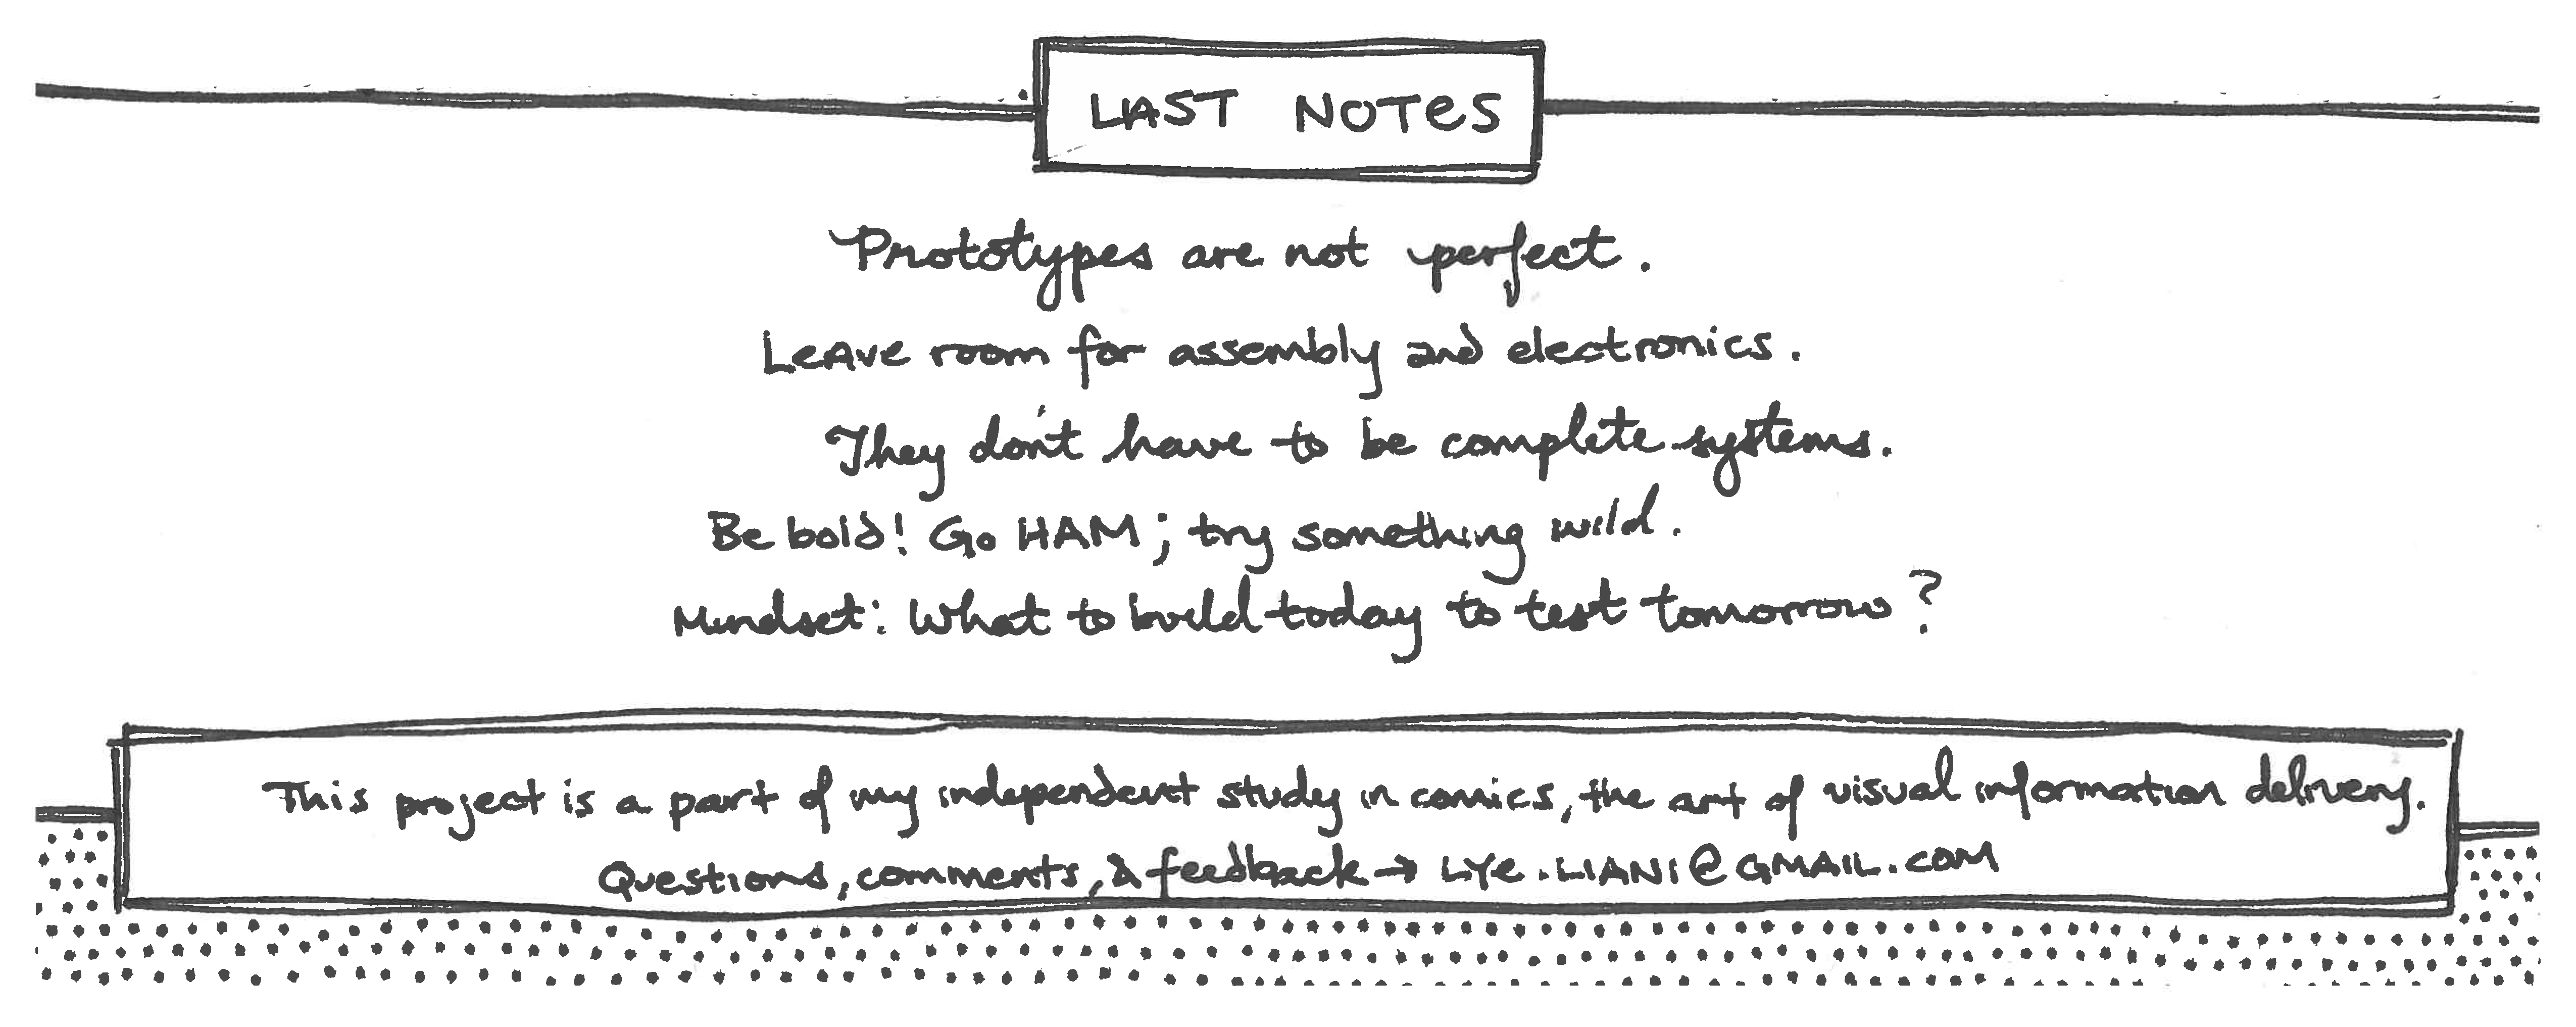 LAST NOTES
Prototypes are not perfect.
Leave room for assembly and electronics.
They don't have to be complete systems.
Be bold! Go HAM; try something wild.
Mindset: What to build today to test tomorrow?
This project is a part of my independent study in comics, the art of visual information delivery.
Questions, comments, & feedback → LYE.LIANI@GMAIL.COM